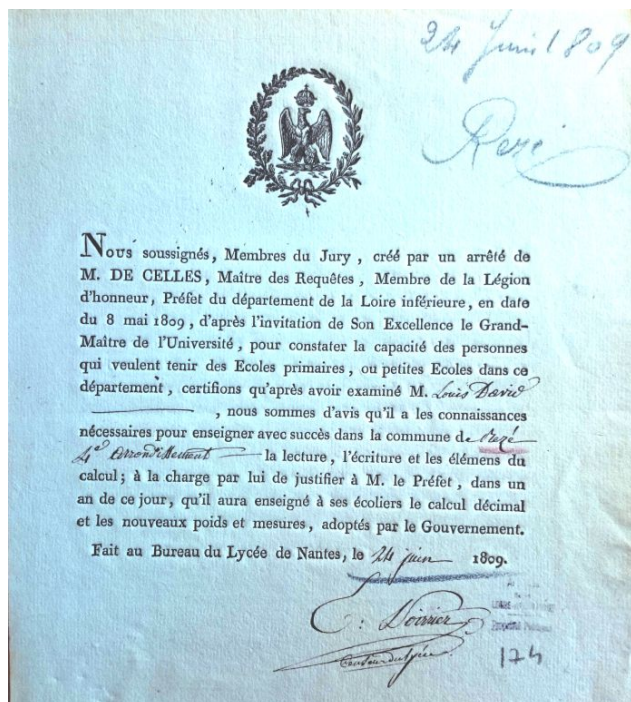 24 Juin 1809
Rezé
Nous soussignés, Membres du Jury, créé par un arrêté de
M. DE CELLES, Maître des Requêtes, Membre de la Légion
d'honneur, Préfet du département de la Loire inférieure, en date
du 8 mai 1809, d'après l'invitation de Son Excellence le Grand-
Maître de l'Université, pour constater la capacité des personnes
qui veulent tenir des Ecoles primaires, ou petites Ecoles dans ce
département, certifions qu'après avoir examiné M. Louis David
, nous sommes d'avis qu'il a les connaissances
nécessaires pour enseigner avec succès dans la commune de Rezé
4e arrondissement la lecture, l'écriture et les élémens du
calcul; à la charge par lui de justifier à M. le Préfet, dans un
an de ce jour, qu'il aura enseigné à ses écoliers le calcul décimal
et les nouveaux poids et mesures, adoptés par le Gouvernement.
Fait au Bureau du Lycée de Nantes, le 24 juin 1809.
174